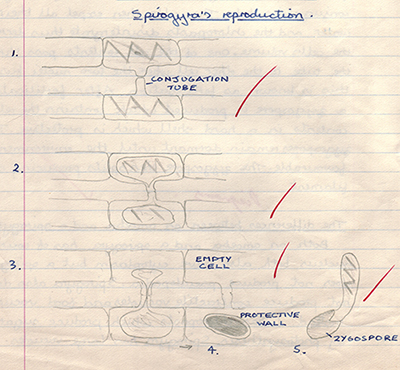 Spirogyra's reproduction.
1.
CONJUGATION
TUBE
2.
3.
EMPTY
CELL
PROTECTIVE
WALL
ZYGOSPORE
4.
5.